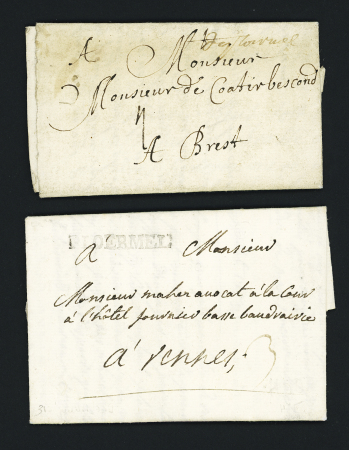 de Ploermel
A Monsieur
Monsieur de Coatirbescond
4
A Brest
PLOERMEL
a Monsieur
Monsieur maher avocat à la Cour
à l'hôtel fournier basse baudrairie
à rennes,
3